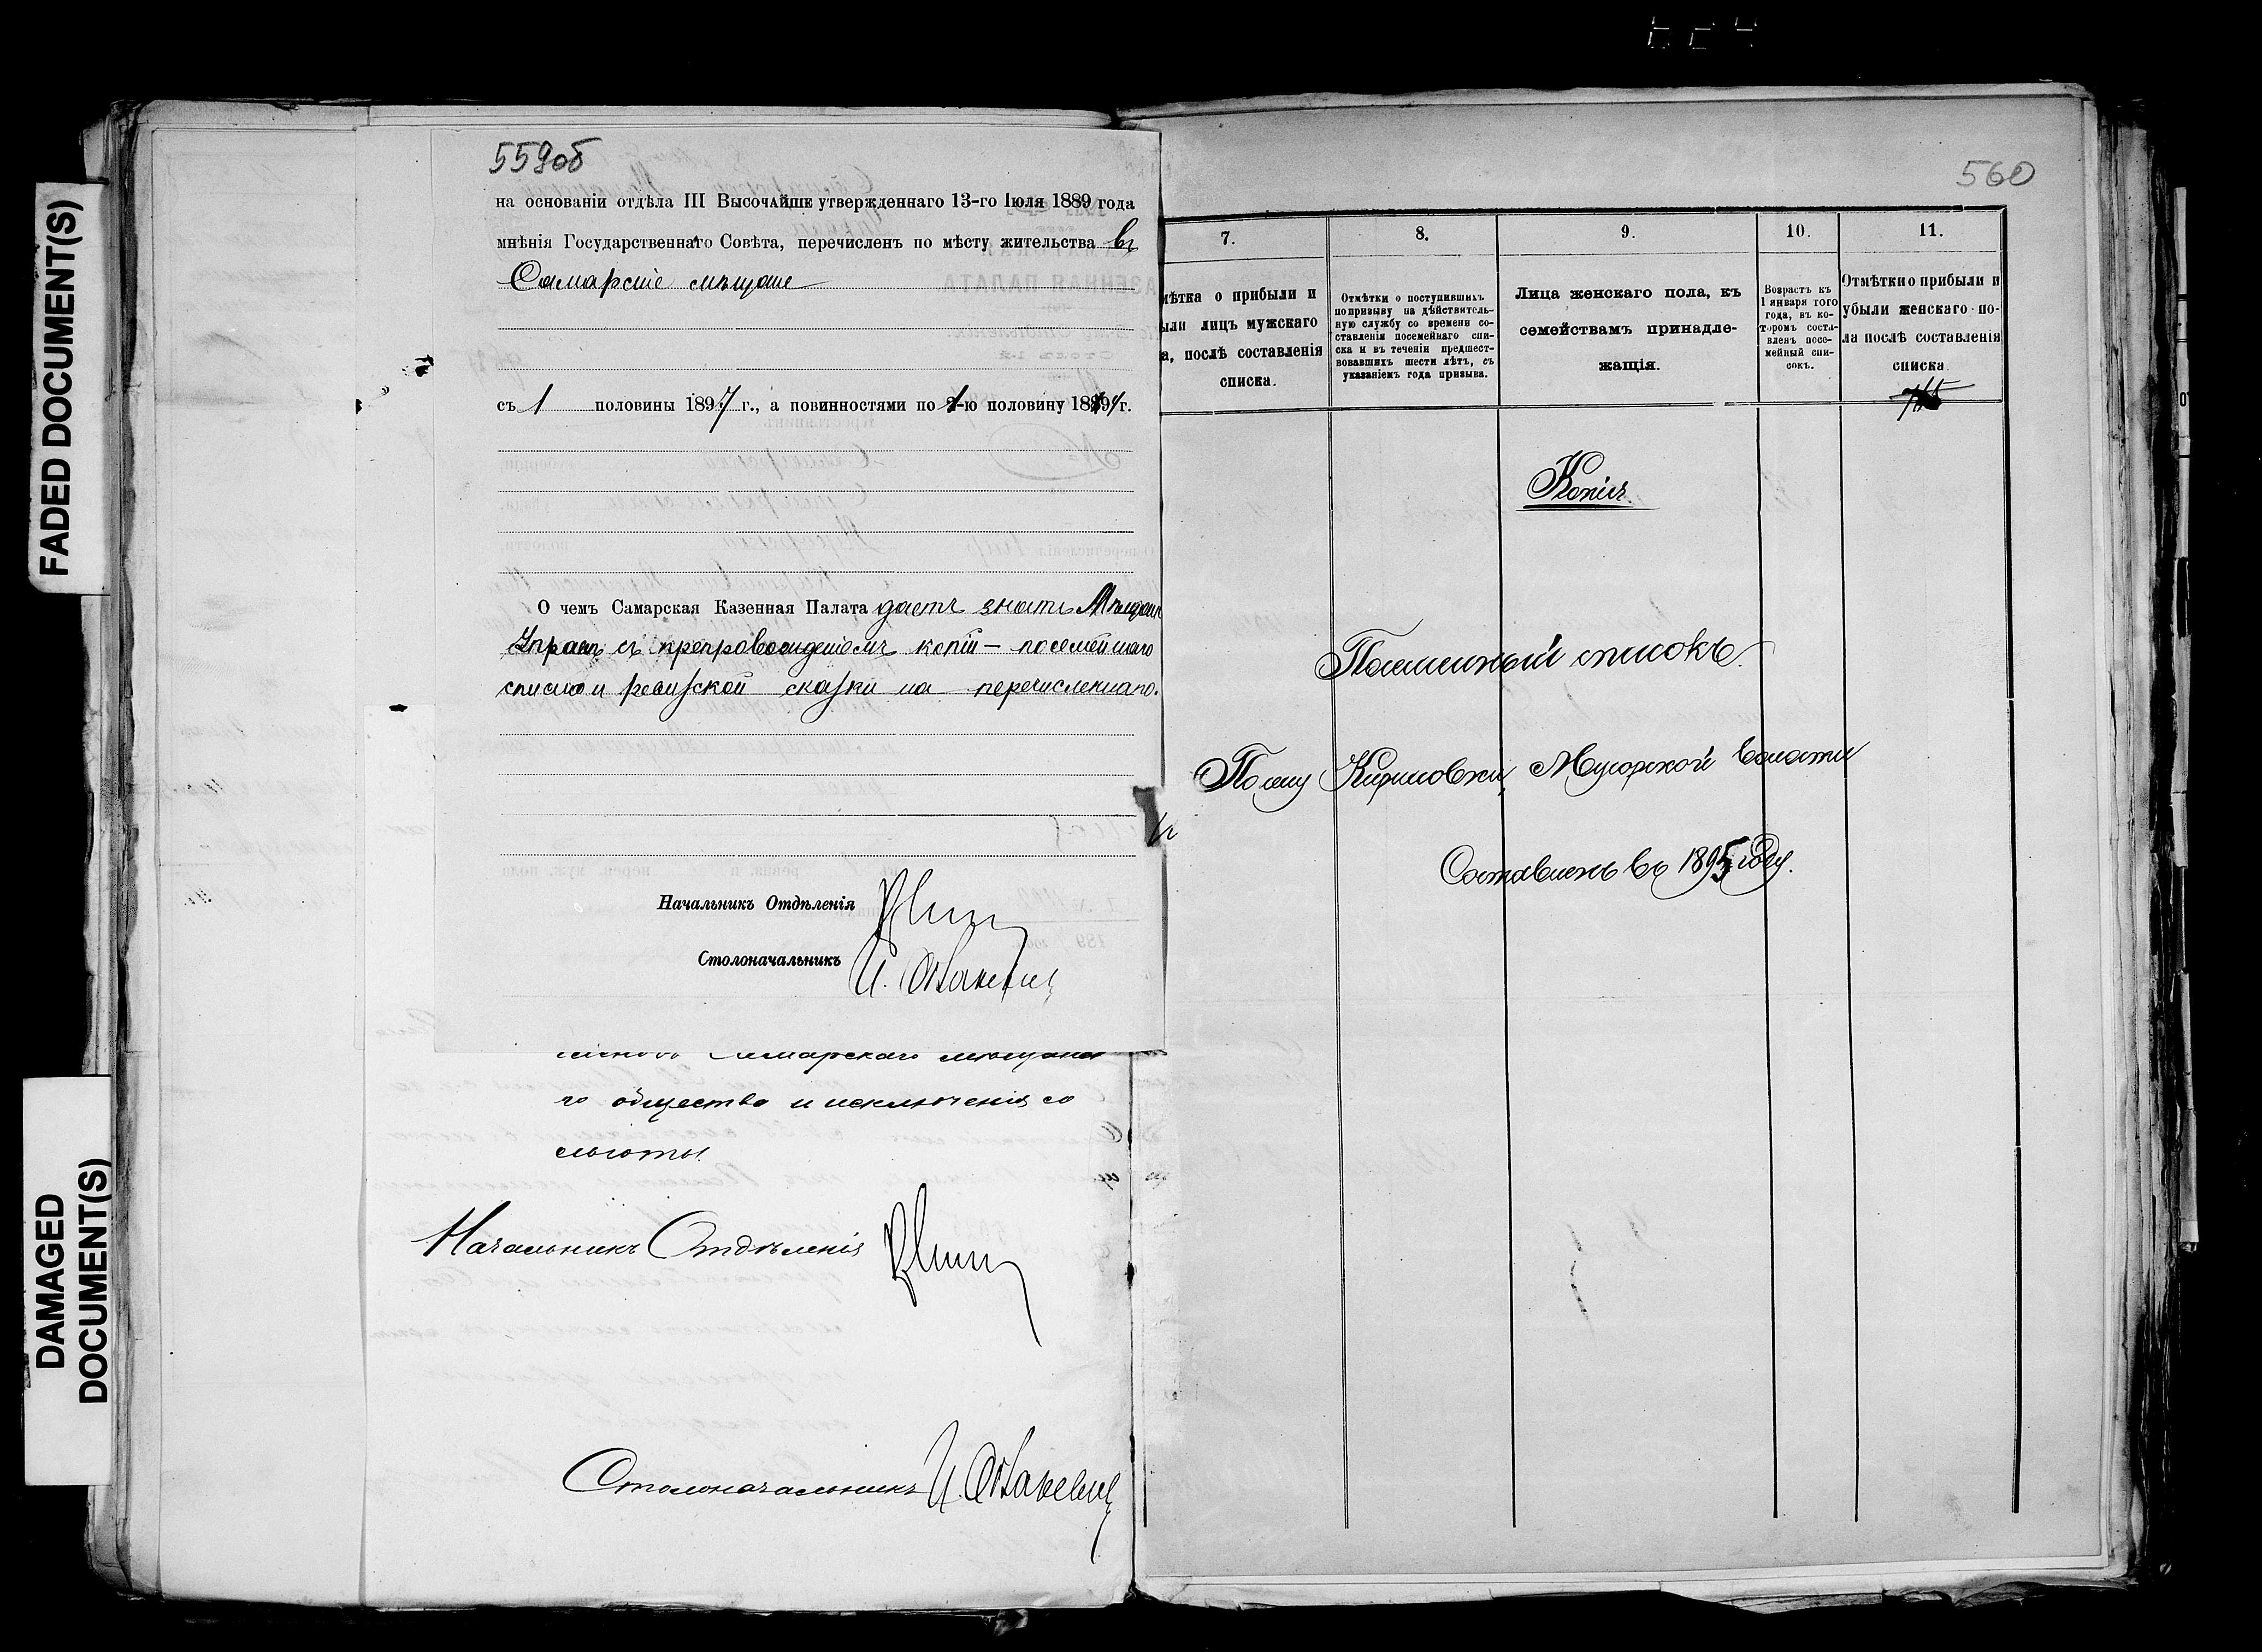 FADED DOCUMENT(S)
DAMAGED
DOCUMENT(S)
559об
на основаніи отдѣла III Высочайше утвержденнаго 13-го Іюля 1889 года
мнѣнія Государственнаго Совѣта, перечисленъ по мѣсту жительства въ
Самарскіе мѣщане
съ 1 половины 1897 г., а повинностями по
-ю половину
г.
О чемъ Самарская Казенная Палата даетъ знать Мѣщан
Управѣ съ препровожденіемъ копій – посемейнаго
списка и ревизской сказки на перечисленнаго.
Начальникъ Отдѣленія
Столоначальникъ
Самарскаго мѣщанска
го общества и исключенія со
льготы.
Начальникъ Отдѣленія
Столоначальникъ
560
7.
8.
9.
10.
11.
мѣтка о прибыли и
ыли лицъ мужскаго
а, послѣ составленія
списка.
Отмѣтки о поступившихъ
по призыву на дѣйствитель-
ную службу со времени со-
ставленія посемейнаго спи-
ска и въ теченіи предшест-
вовавшихъ шести лѣтъ, съ
указаніемъ года призыва.
Лица женскаго пола, къ
семействамъ принадле-
жащія.
Возрастъ къ
1 января того
года, въ ко-
торомъ соста-
вленъ посе-
мейный спи-
сокъ.
Отмѣтки о прибыли и
убыли женскаго по-
ла послѣ составленія
списка
Копія.
Посемейный списокъ.
По селу Кириловки, Мусорской волости
Составленъ въ 1895 году.